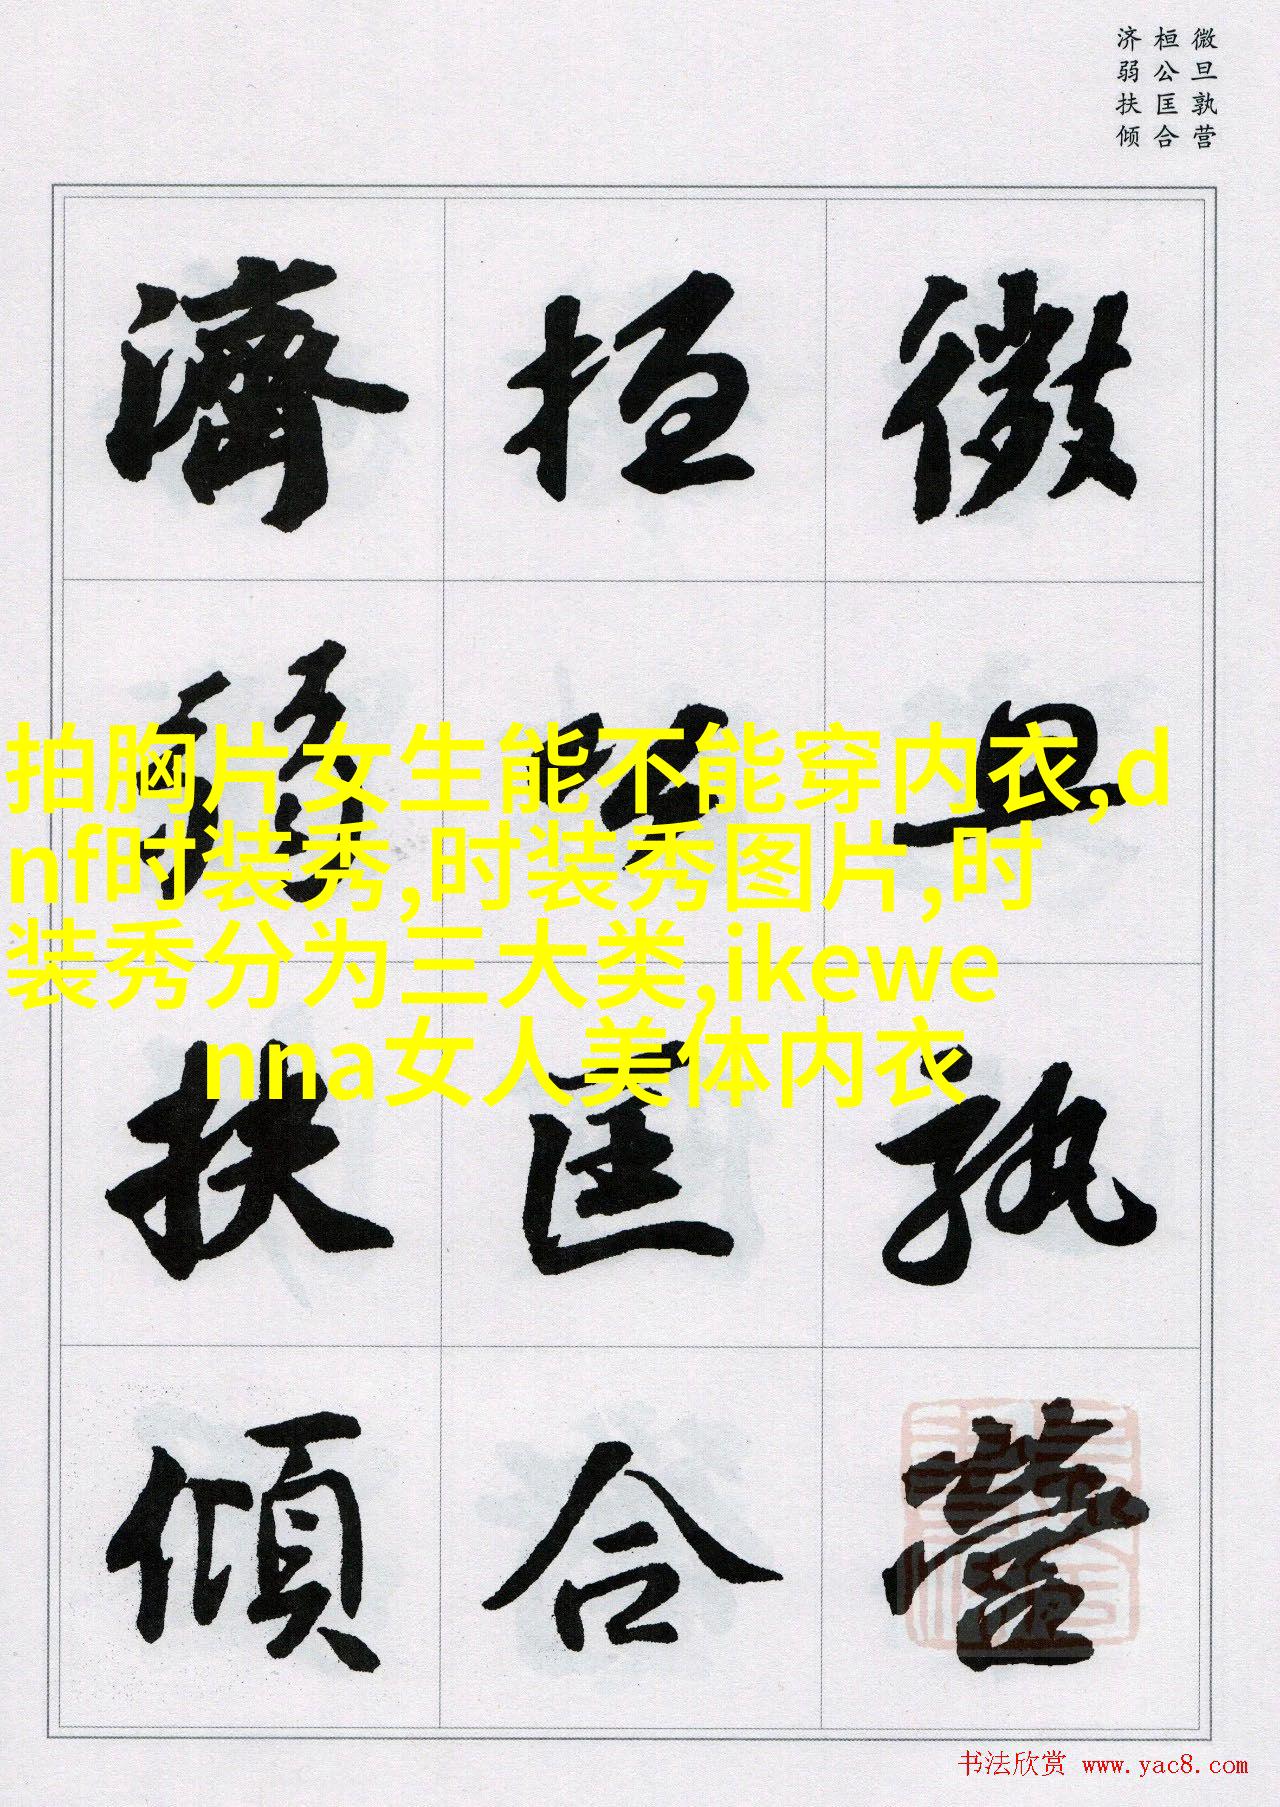 微旦孰营
桓公匡合
济弱扶倾
微旦孰營
桓公匡合
濟弱扶傾
拍胸片女生能不能穿内衣,d
nf时装秀,时装秀图片,时
装秀分为三大类,ikewe
nna女人美体内衣
书法欣赏 www.yac8.com